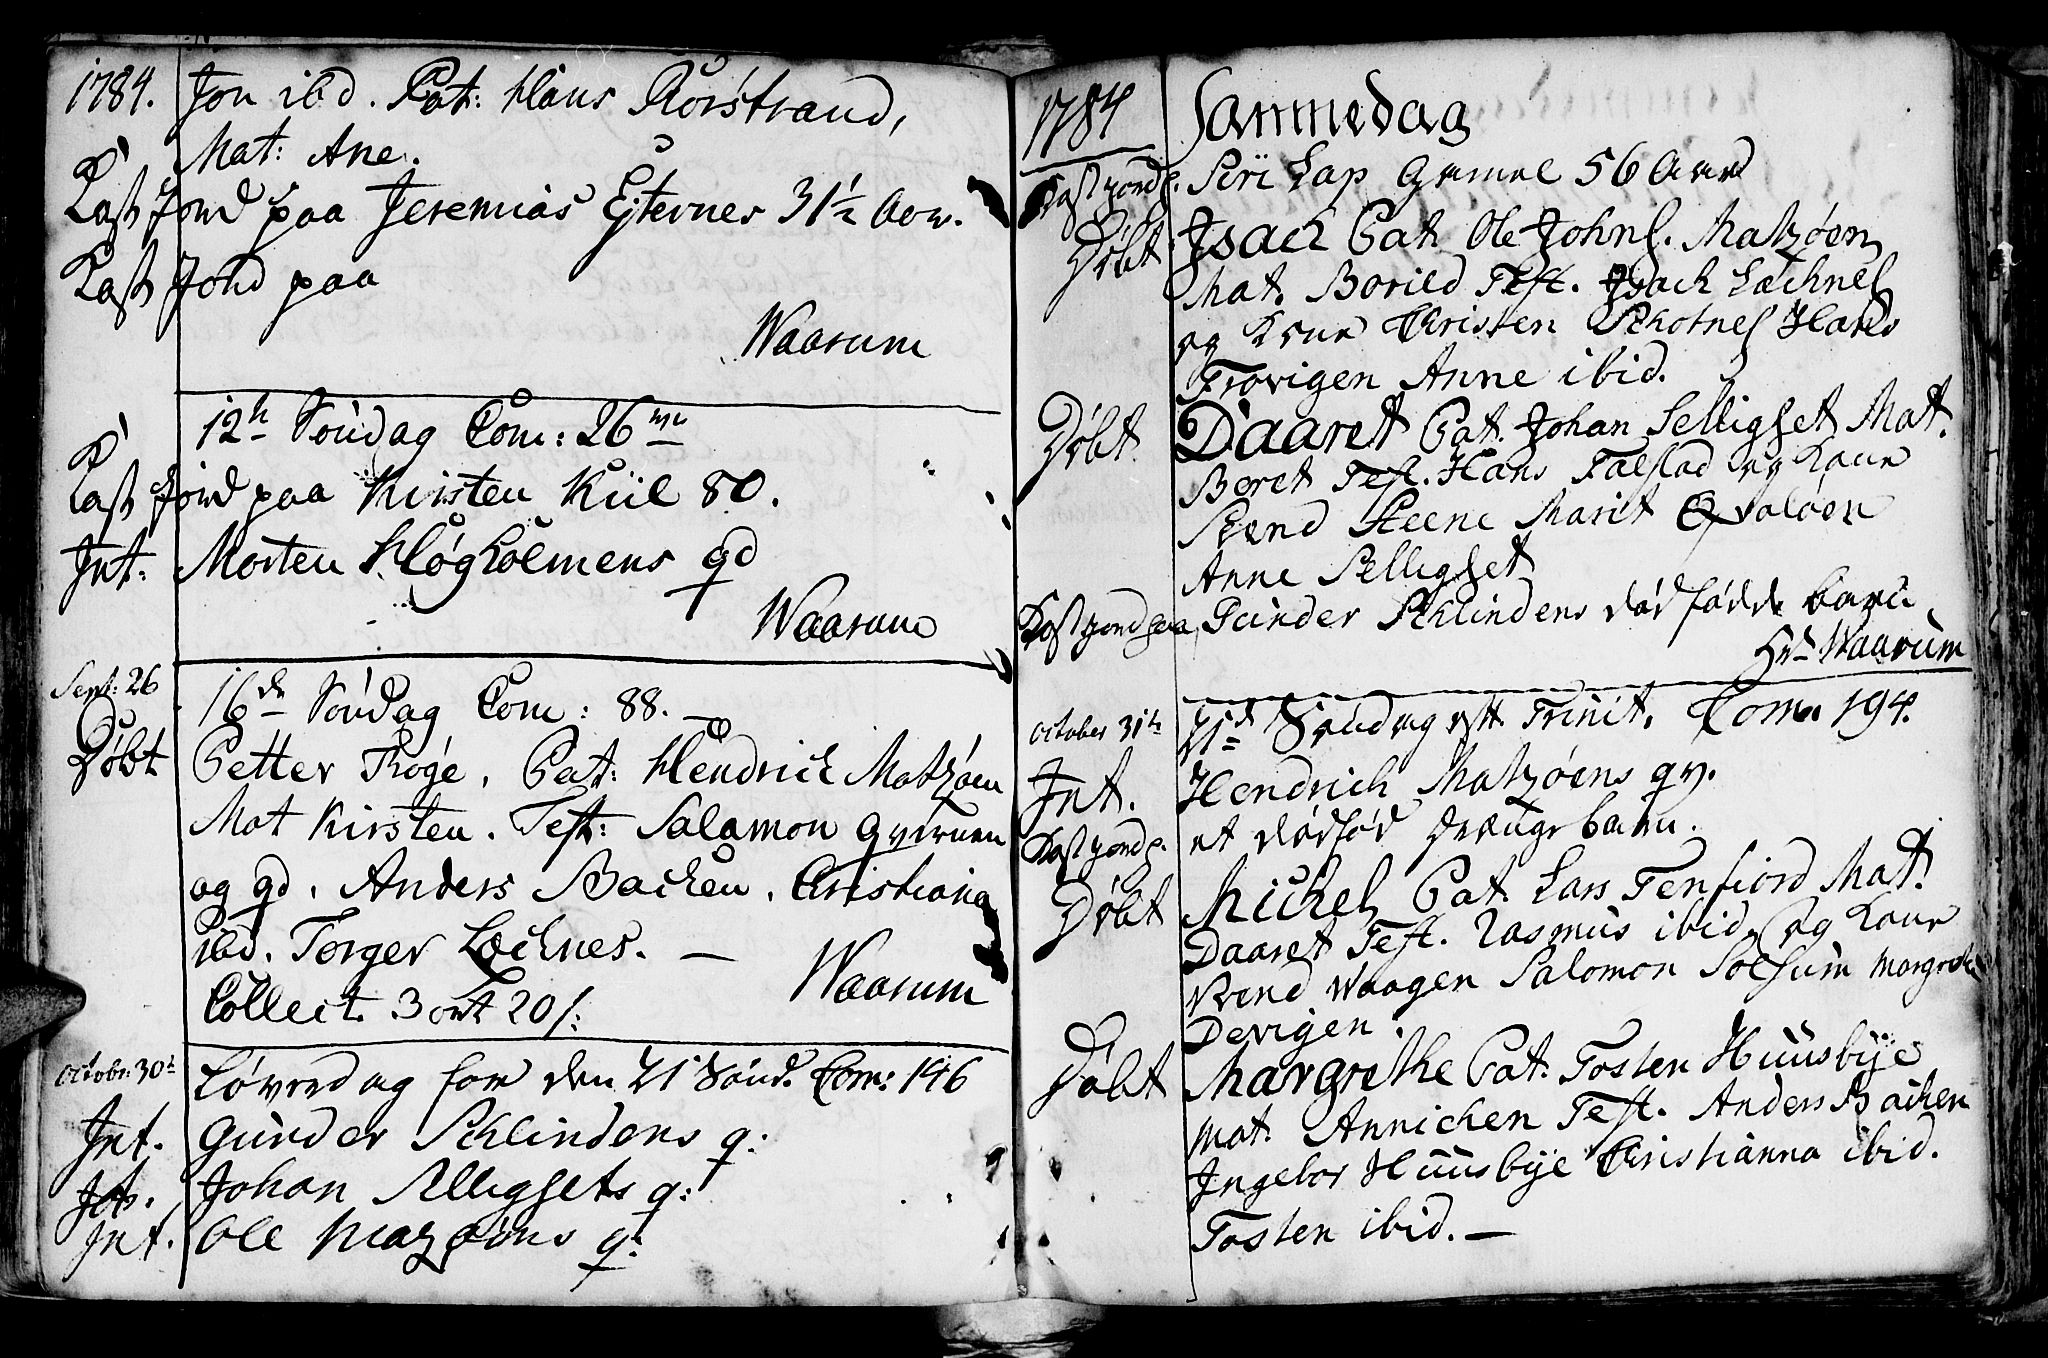 1784. Jon ibd. Pat: Hans Rorstrand,
Mat: Ane.
Kast Jord paa Jeremias Ejternes 31½ Aar.
Kast Jord paa
Waarum
12te Søndag Com: 26 me
Kast Jord paa Kirsten Kiil 80.
Int: Morten Høgholmens qd
Waarum
Sept: 26 16de Søndag Com: 88.
Døbt Petter Røge, Pat: Hendrich Matzøen
Mat Kirsten. Test: Salamon Qvernen
og qd. Anders Backen. Christiana
ibd. Torger Lechnes. —
Waarum
Collect. 3 ort 20 s:
Octobr: 30te Løverdag for den 21 Sønd. Com: 146
Int. Gunder Schlindens q:
Int. Johan Selligsets q:
Int. Ole Mazøens q:
1784 Sammedag
Kast jord p. Siri Lap Gamel 56 Aar
Døbt Isach Pat Ole Johns. Matzøen
Mat. Borild Test. Isach Lechnes
og Kone Christen Schotnes Hans
Trøvigen Anne ibid.
Døbt Daaret Pat. Johan Selligset Mat.
Beret Test. Hans Talstad og Kone
Svend Steene Marit Qvaløen
Anne Selligset
Kast jord paa Gunder Schlindens død fødde barn.
Hr Waarum
October 31te 21de Søndag eft Trinit. Com. 194.
Int. Hendrich Matzøens qv.
Kast jord p. et dødfød drænge barn.
Døbt Michel Pat. Lars Tenfiord Mat.
Daaret Test. Rasmus ibid. og Kone
Svend Waagen Salomon Solsum Margrete
Devigen.
Døbt Margrethe Pat. Tosten Huusbÿe
Mat. Annichen Test. Anders Bachen
Ingebor Huusbÿe Christianna ibid.
Tosten ibid. —